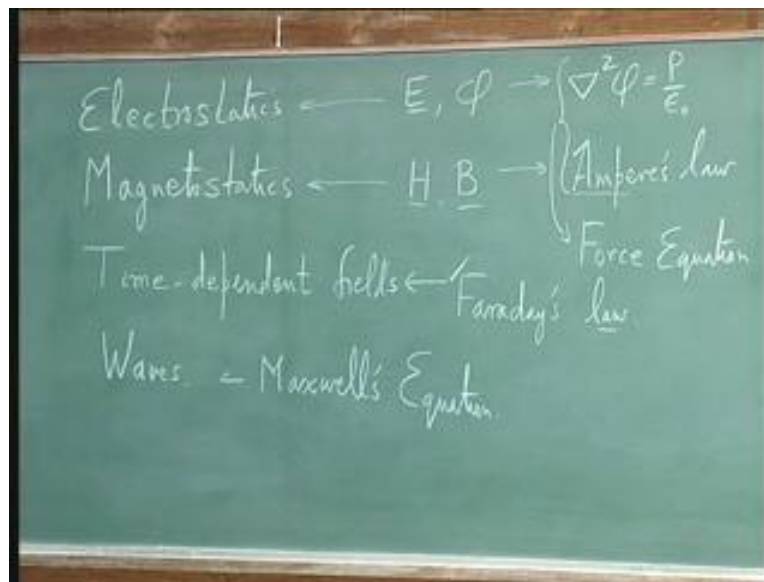 Electrostatics ← E, φ → ∇²φ = ρ/ε₀
Magnetostatics ← H, B → Ampere's law
Force Equation
Time-dependent fields ← Faraday's law
Waves ← Maxwell's Equation